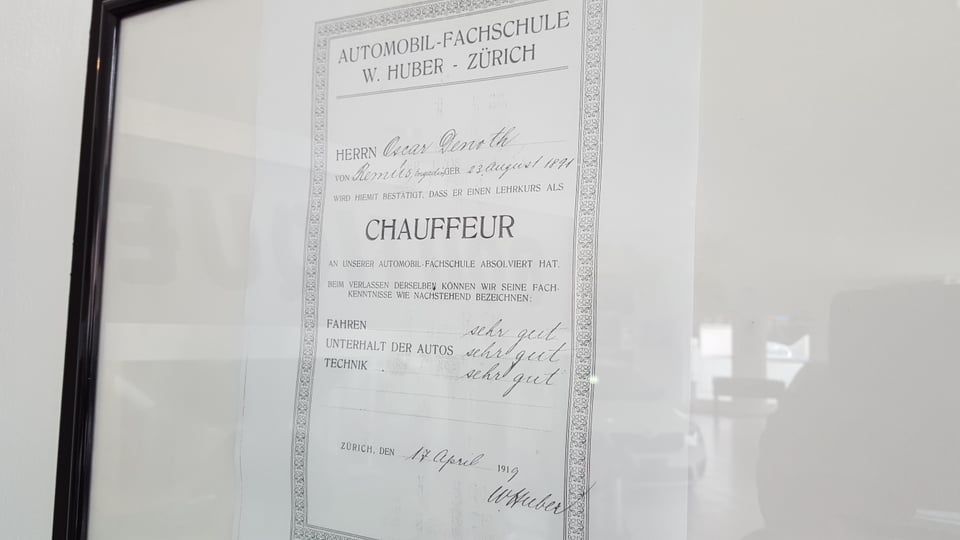 AUTOMOBIL-FACHSCHULE
W. HUBER - ZÜRICH
HERRN Oscar Denoth
VON Remüs, Engadin GEB. 23. August 1891
WIRD HIEMIT BESTÄTIGT, DASS ER EINEN LEHRKURS ALS
CHAUFFEUR
AN UNSERER AUTOMOBIL-FACHSCHULE ABSOLVIERT HAT.
BEIM VERLASSEN DERSELBEN KÖNNEN WIR SEINE FACH-
KENNTNISSE WIE NACHSTEHEND BEZEICHNEN:
FAHREN sehr gut
UNTERHALT DER AUTOS sehr gut
TECHNIK sehr gut
ZÜRICH, DEN 17 April 1919
W. Huber